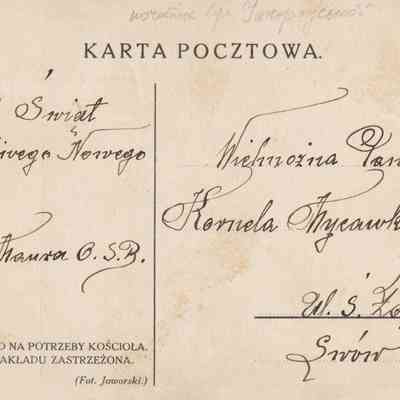 KARTA POCZTOWA.
Świąt
Nowego
Maura O.S.B.
O NA POTRZEBY KOŚCIOŁA.
AKŁADU ZASTRZEŻONA.
(Fot. Jaworski.)
Wielmożna Pan
Kornela Wycawk
Ul. Ś.
Lwów